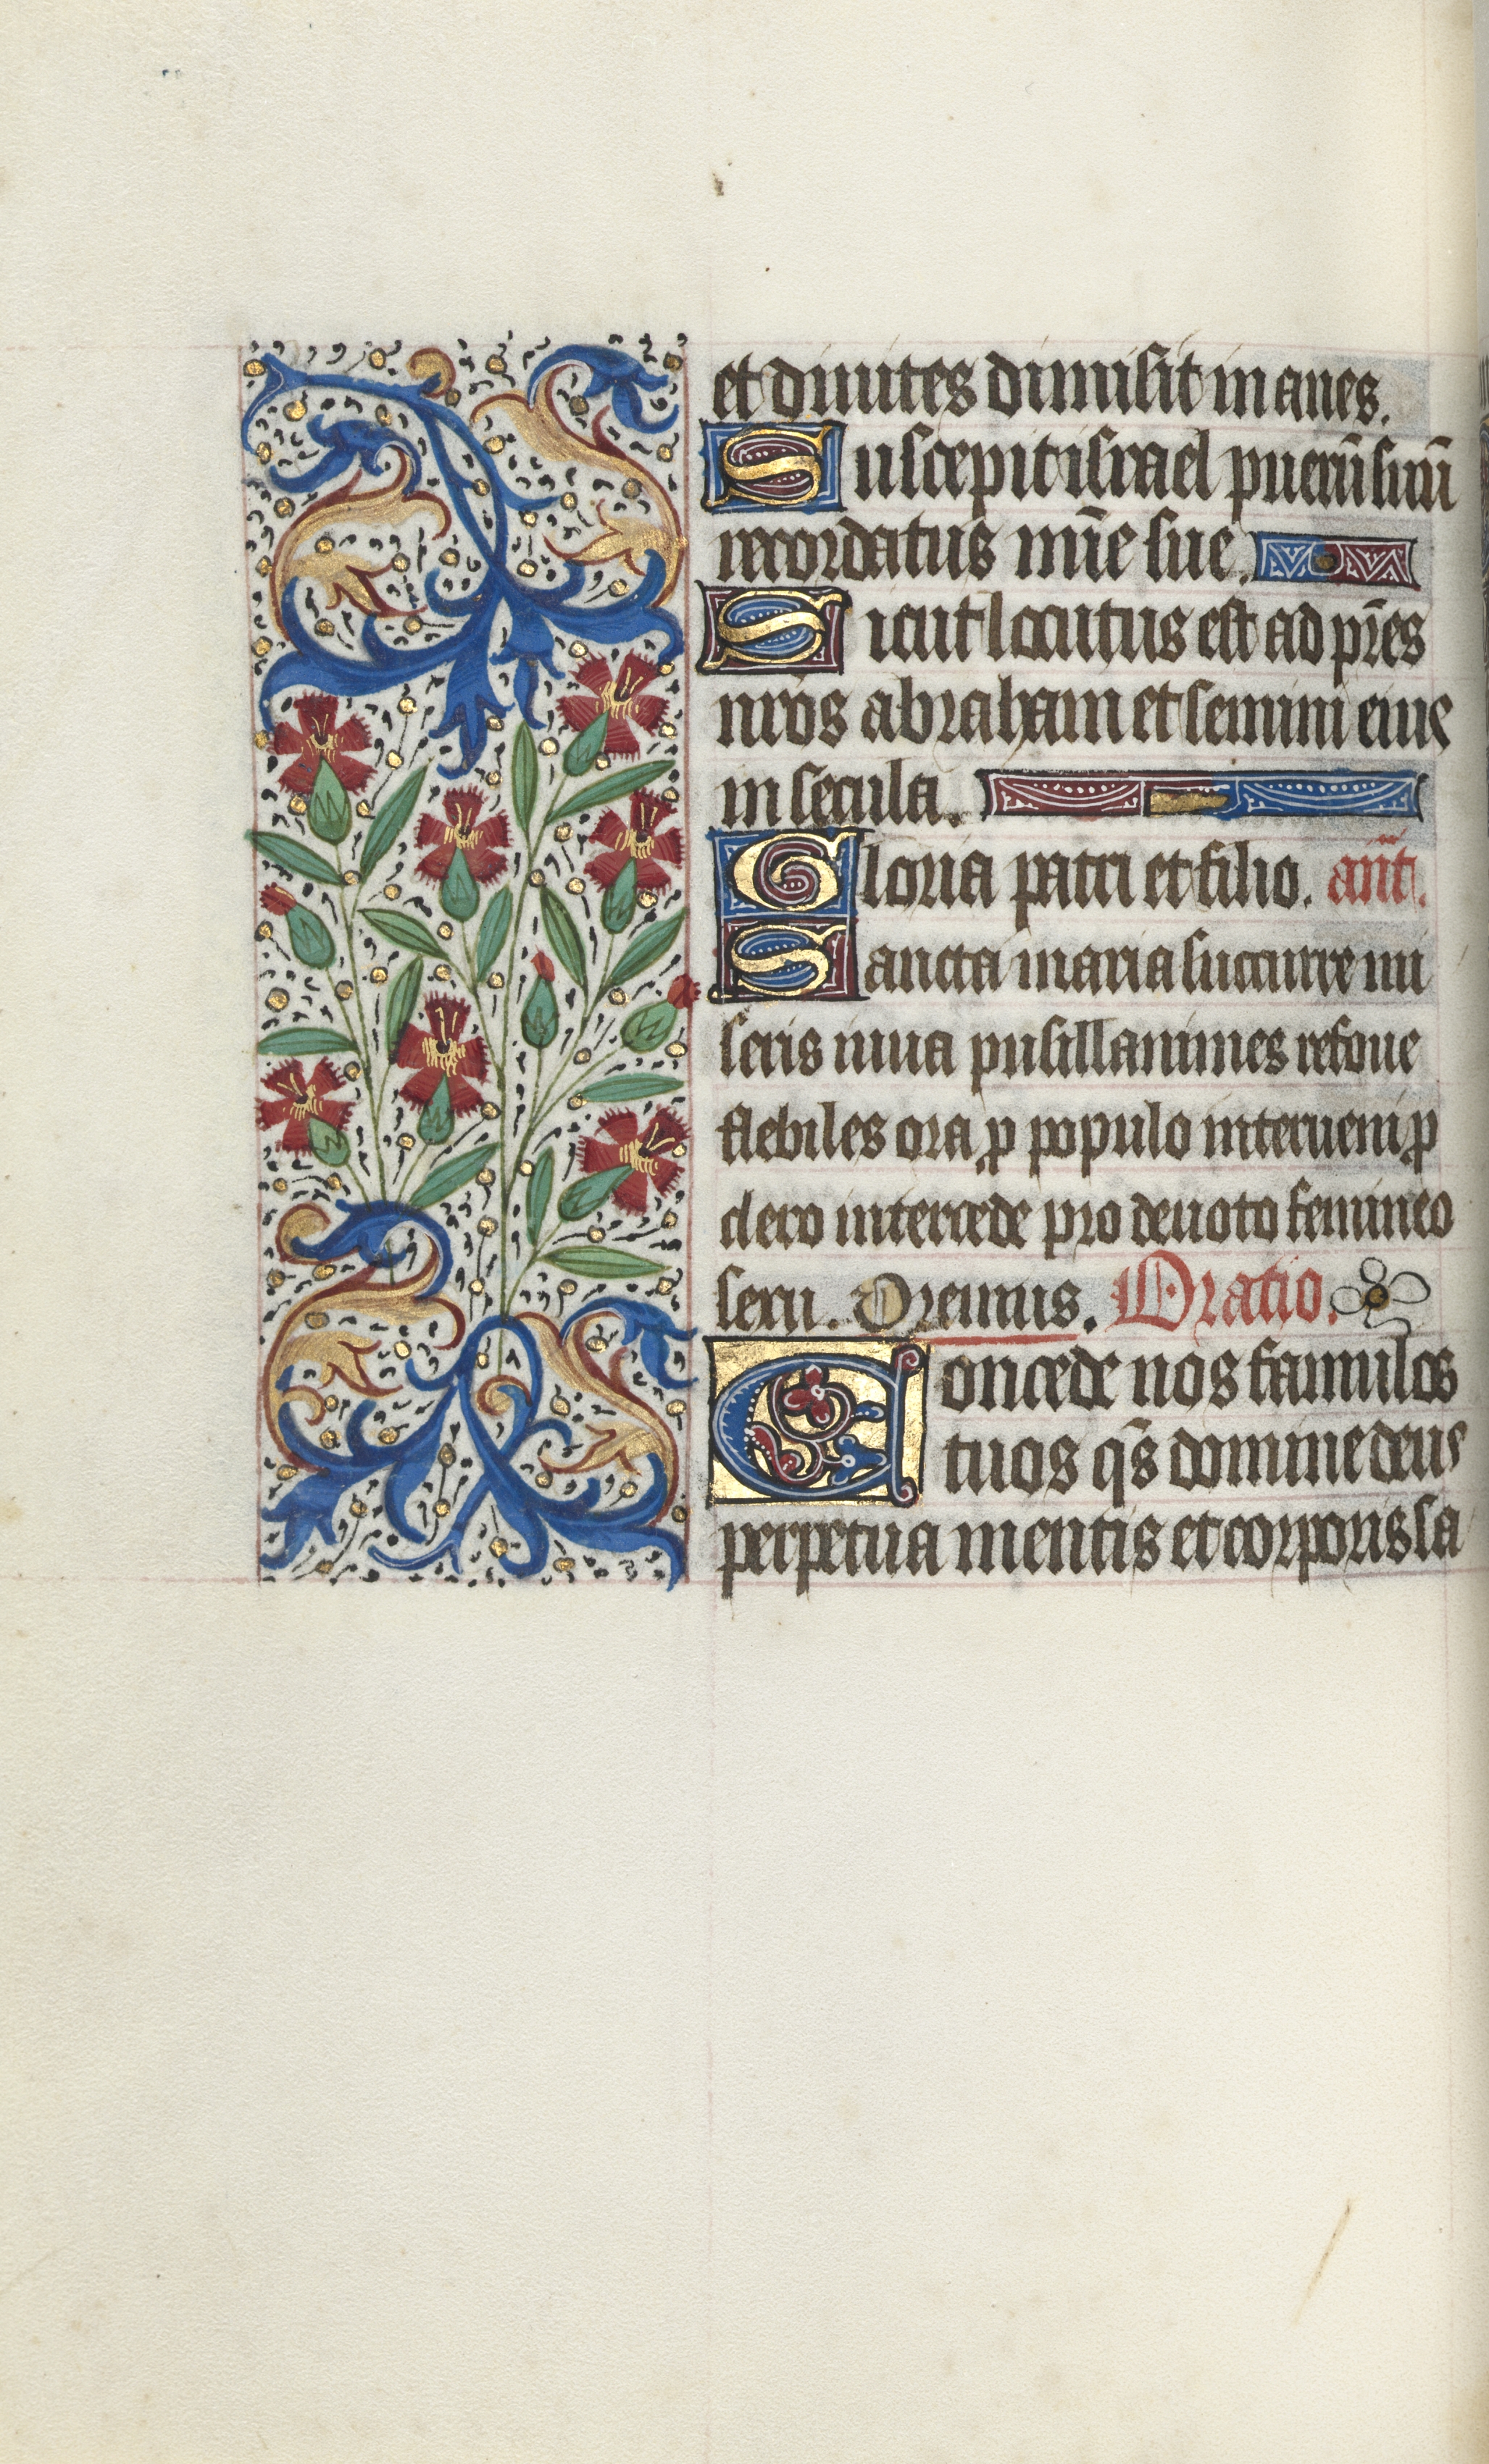 et diuites dimisit inanes.
Suscepit israel puerū suū
recordatus mīe sue.
Sicut locutus est ad pr̄es
nr̄os abraham et semini eius
in secula.
Gloria patri et filio. an̄t.
Sancta maria succurre mi
seris iuua pusillanimes refoue
flebiles ora ꝓ populo interueni ꝓ
clero intercede pro deuoto femineo
sexu. Oremus. Oratio.
Concede nos famulos
tuos q̄s domine deus
perpetua mentis et corporis sa